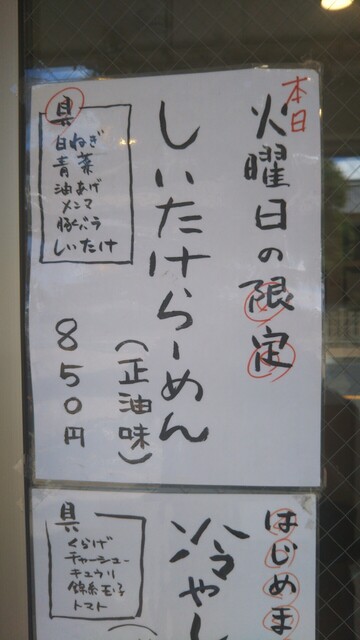 本日
火曜日の限定
しいたけらーめん
(正油味)
850円
具
白ねぎ
青菜
油あげ
メンマ
豚バラ
しいたけ
はじめま
冷やし
具
くらげ
チャーシュー
キュウリ
錦糸玉子
トマト